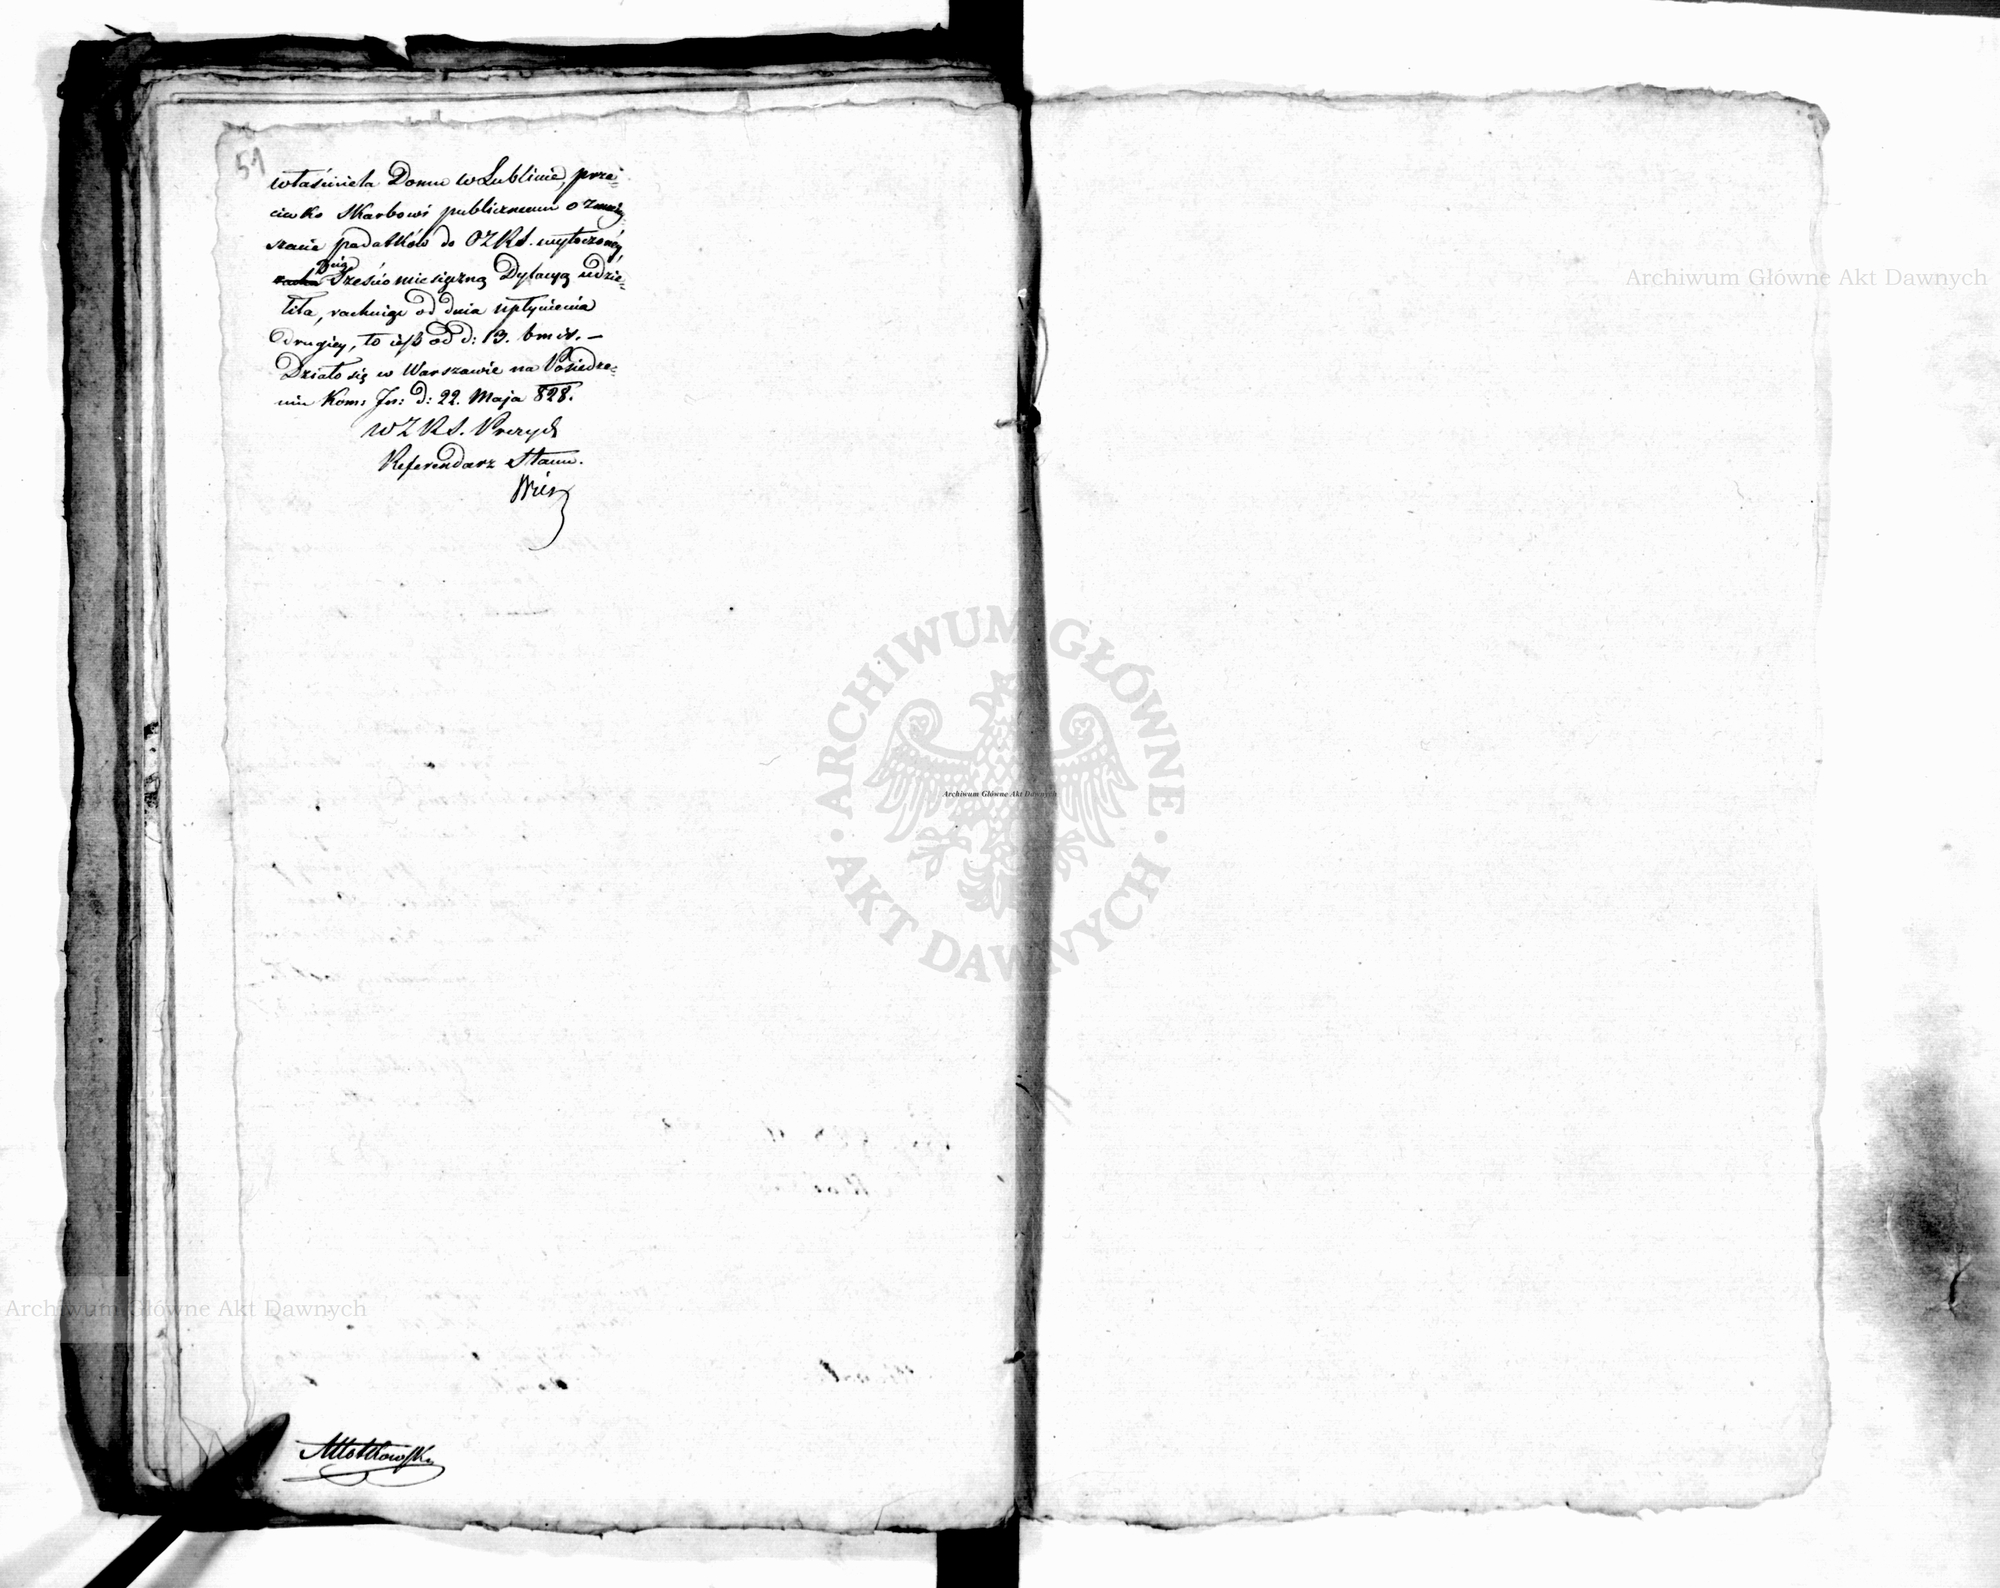 51
właściciela Domu w Lublinie, prze=
ciwko Skarbowi publicznemu o zmniey=
szenie podatków do OZRS. wytoczonéy,
trzecią
Sześciomiesięczną Dylacyą udzie=
liła, rachuiąc od dnia upłynienia
drugiey, to iest od d: 13. bm ir. —
Działo się w Warszawie na Posiedze=
niu Kom: Jn: d: 22. Maja 828.
W Z R S. Prezyd:
Referendarz Stanu.
Archiwum Główne Akt Dawnych
ARCHIWUM GŁÓWNE AKT DAWNYCH
Archiwum Główne Akt Dawnych
Archiwum Główne Akt Dawnych